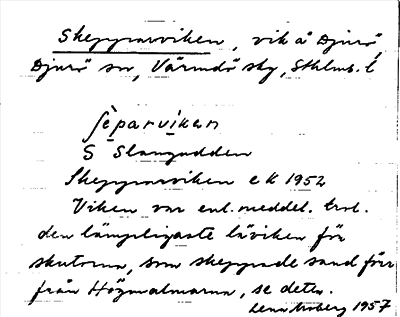 Skepparviken, vik å Djurö,
Djurö sn, Värmdö sky, Sthlms. l
ʃèparvìken
S Slangudden
Skepparviken ek 1952
Viken var enl. meddel. trol.
den lämpligaste läviken för
skutorna, som skeppade sand förr
från Högmalmarna, se detta.
1957